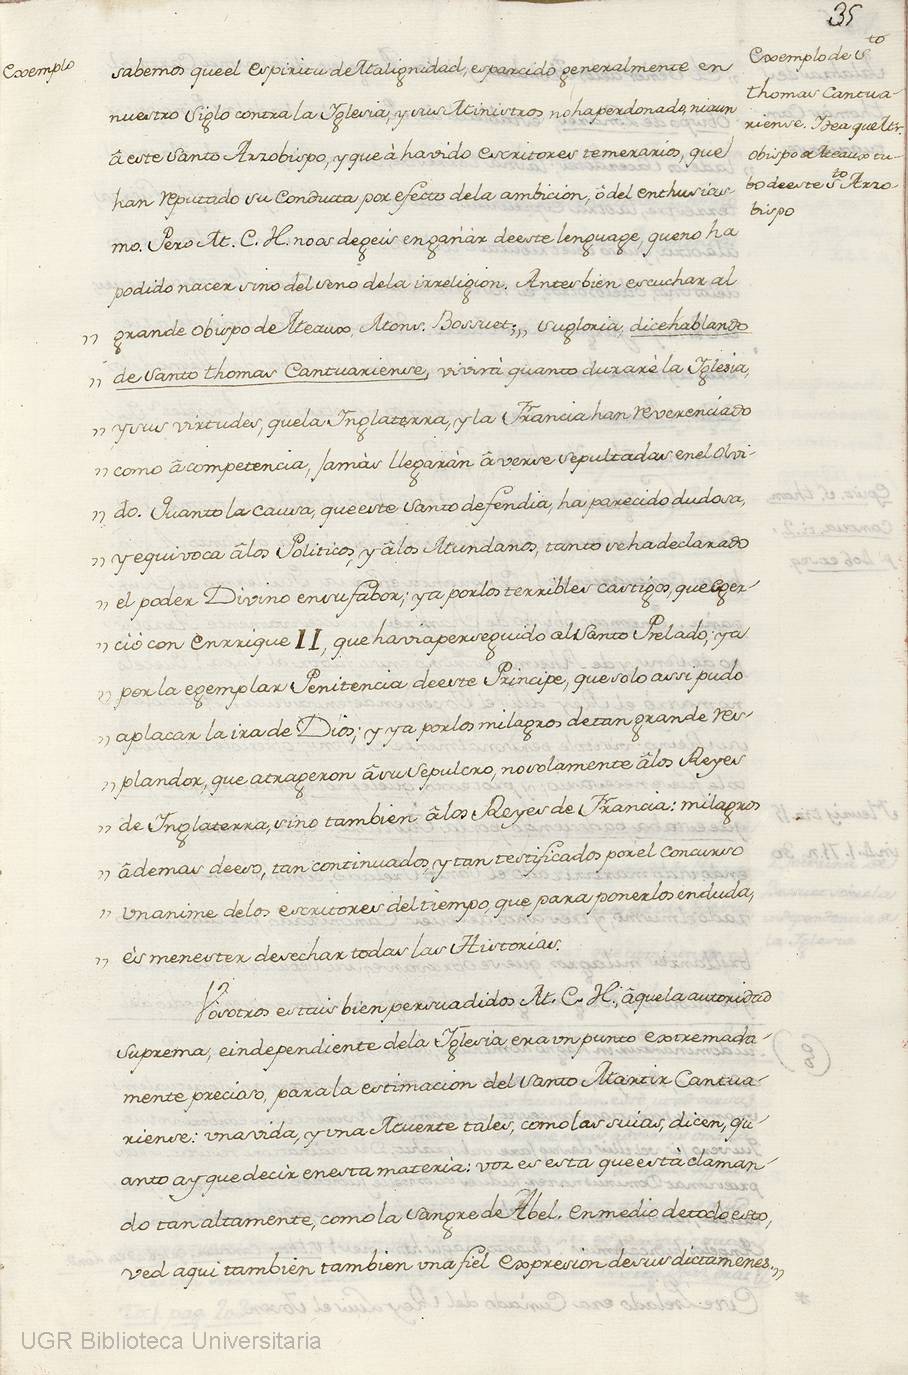 35
Exemplo
Exemplo de S.to
thomas Cantua-
riense. Idea que el Ilr.
obispo de Meaux tu-
bo de este S.to Arzo-
bispo
sabemos que el espiritu de Malignidad, esparcido generalmente en
nuestro Siglo contra la Iglesia, y sus Ministros no ha perdonado, ni aun
â este Santo Arzobispo, y que à havido escritores temerarios, que
han reputado su Conducta por efecto de la ambicion, ô del enthusias-
mo. Pero M. C. H. no os degeis engañar de este lenguage, que no ha
podido nacer sino del seno de la irreligion. Antes bien escuchar al
,, grande Obispo de Meaux, Mons. Bossuet;,,, su gloria, dice hablando
,, de Santo thomas Cantuariense, vivirà quanto durarè la Iglesia,
,, y sus virtudes, que la Inglaterra, y la Francia han reverenciado
,, como â competencia, Jamàs llegaràn â verse sepultadas en el olvi-
,, do. Quanto la causa, que este Santo defendia, ha parecido dudosa,
,, y equivoca â los Politicos, y â los Mundanos, tanto se ha declarado
,, el poder Divino en su fabor; ya por los terribles castigos, que eger-
,, ció con Enrrique II, que havia perseguido al Santo Prelado; ya
,, por la egemplar Penitencia de este Principe, que solo assi pudo
,, aplacar la ira de Dios; y ya por los milagros de tan grande res-
,, plandor, que atrageron â su Sepulcro, no solamente â los Reyes
,, de Inglaterra, sino tambien â los Reyes de Francia: milagros
,, âdemas de eso, tan continuados, y tan testificados por el Concurso
,, unanime de los escritores del tiempo, que para ponerlos en duda,
,, ès menester desechar todas las Historias.
Vosotros estais bien persuadidos M. C. H., â que la autoridad
suprema, e independiente de la Iglesia era un punto extremada-
mente precioso, para la estimacion del Santo Martir Cantua-
riense: una vida, y una Muerte tales, como las suias, dicen, qu-
anto ay que decir en esta materia: voz es esta que està claman-
do tan altamente, como la Sangre de Abel. En medio de todo esto,
ved aqui tambien tambien una fiel expresion de sus dictamenes.,,
UGR Biblioteca Universitaria